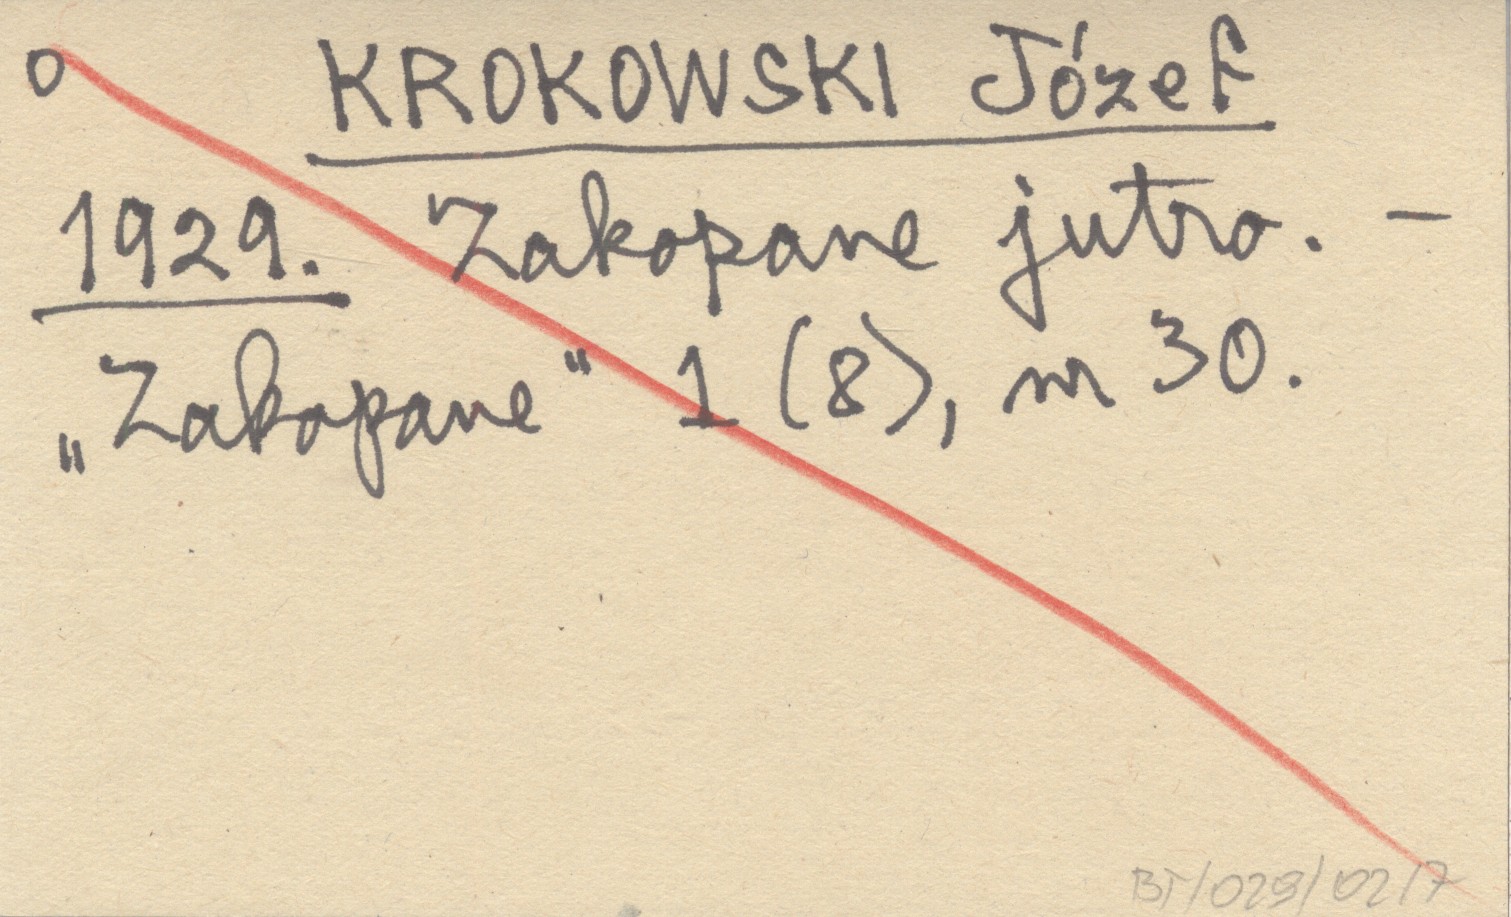 o KROKOWSKI Józef
1929. Zakopane jutro. –
„Zakopane" 1 (8), nr 30.
BT/029/02/7